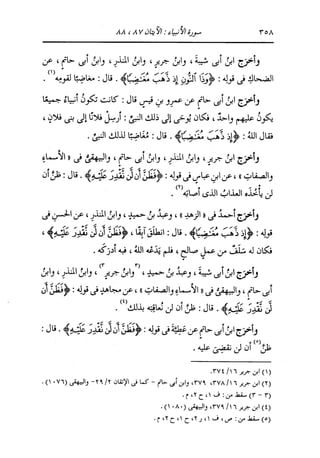 ٣٥٨ سورة الأنبياء : الآيتان ٨٧ ، ٨٨
وأخرج ابنُ أبى شيبةَ ، وابنُ جريرٍ ، وابنُ المنذرِ ، وابنُ أبى حاتمٍ ، عن
الضحاكِ فى قولِه : ﴿وَذَا ٱلنُّونِ إِذ ذَّهَبَ مُغَٰضِبًا﴾ . قال : مغاضبًا لقومِه(١) .
وأخرَج ابنُ أبى حاتمٍ عن عمرِو بنِ قيسٍ قال : كانت تكونُ أنبياءُ جميعًا
يكونُ عليهم واحدٌ ، فكان يُوحَى إلى ذلك النبىِّ : أرسِلْ فلانًا إلى بنى فلانٍ ،
فقال اللهُ : ﴿إِذ ذَّهَبَ مُغَٰضِبًا﴾ . قال : مُغاضِبًا لذلك النبىِّ .
وأخرَج ابنُ جريرٍ ، وابنُ المنذرِ ، وابنُ أبى حاتمٍ ، والبيهقىُّ فى « الأسماءِ
والصفاتِ » ، عن ابنِ عباسٍ فى قولِه : ﴿فَظَنَّ أَن لَّن نَّقْدِرَ عَلَيْهِ﴾ . قال : ظنَّ أن
لن يأخُذَه العذابُ الذى أصابَه(٢) .
وأخرَج أحمدُ فى « الزهدِ » ، وعبدُ بنُ حميدٍ ، وابنُ المنذرِ ، عن الحسنِ فى
قولِه : ﴿إِذ ذَّهَبَ مُغَٰضِبًا﴾ . قال : انطلَق آبِقًا ، ﴿فَظَنَّ أَن لَّن نَّقْدِرَ عَلَيْهِ﴾ ،
فكان له سَلَفٌ من عملٍ صالحٍ ، فلم يَدَعْه اللهُ ، فبه أدرَكه .
وأخرَج ابنُ أبى شيبةَ ، وعبدُ بنُ حميدٍ ، (٣وابنُ جريرٍ٣) ، وابنُ المنذرِ ، وابنُ
أبى حاتمٍ ، والبيهقىُّ فى « الأسماءِ والصفاتِ » ، عن مجاهدٍ فى قولِه : ﴿فَظَنَّ أَن
لَّن نَّقْدِرَ عَلَيْهِ﴾ . قال : ظنَّ أن لن نُعاقِبَه بذلك(٤) .
وأخرَج ابنُ أبى حاتمٍ عن عطيةَ فى قولِه : ﴿فَظَنَّ أَن لَّن نَّقْدِرَ عَلَيْهِ﴾ . قال :
ظنَّ(٥) أن لن نقضىَ عليه .
(١) ابن جرير ١٦/ ٣٧٤.
(٢) ابن جرير ١٦/ ٣٧٨، ٣٧٩، وابن أبى حاتم - كما فى الإتقان ٢/ ٢٩ - والبيهقى (١٠٧٦) .
(٣ - ٣) سقط من : ف ١، ح ٢، م .
(٤) ابن جرير ١٦/ ٣٧٩، والبيهقى (١٠٨٠) .
(٥) سقط من : ص، ف ١، ر ٢، ح ١، ح ٢، م .